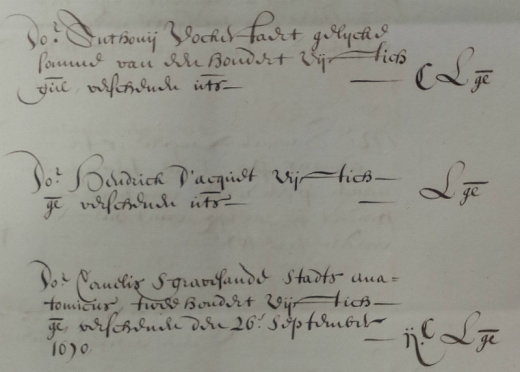 Dor. Anthonij Vockestaert gelycke
somme van een hondert vijftich
gūl. verschenen ūts C L gē
Dor. Hendrick D'acquet vijftich
gē verschenen ūts L gē
Dor. Cornelis sgravesande stadts ana=
tomicus twee hondert vijftich
gē verschenen den 26e. September
1670 ij.C L gē